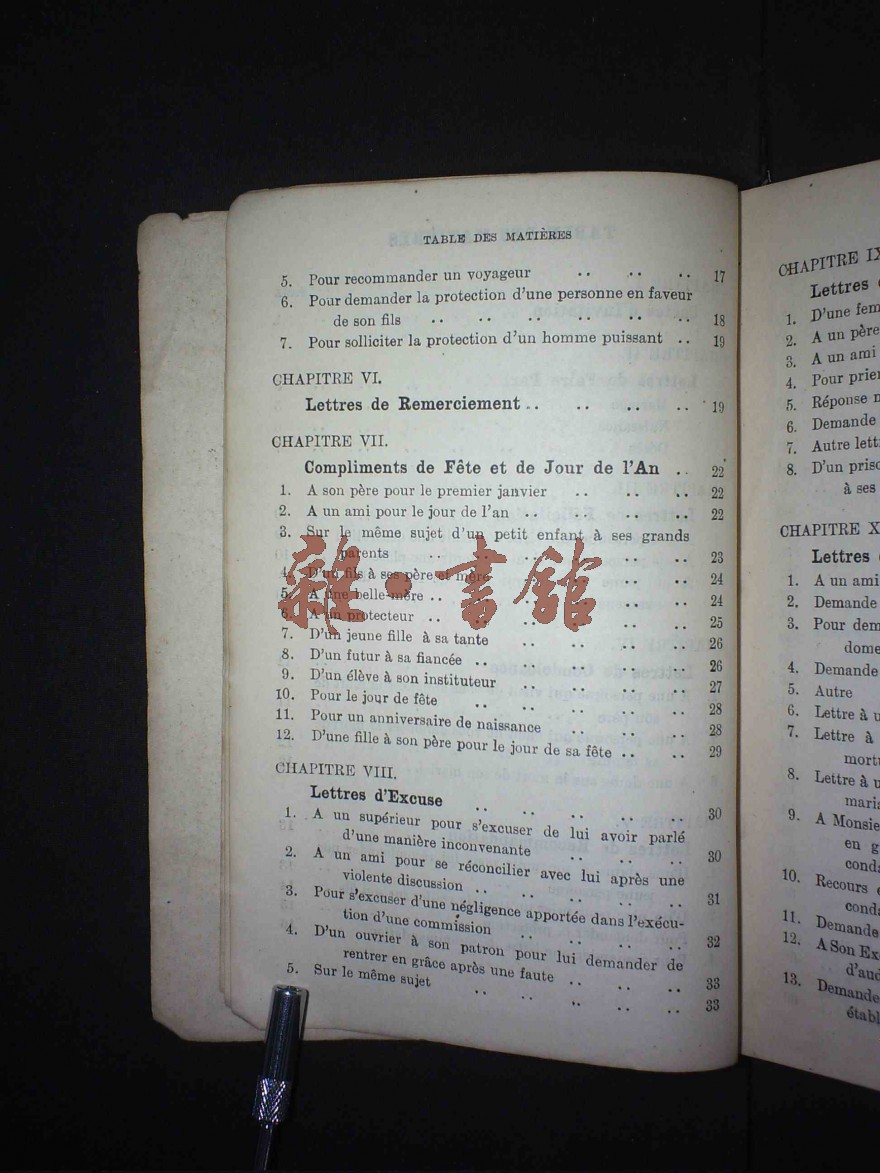 TABLE DES MATIÈRES
5. Pour recommander un voyageur .. .. .. 17
6. Pour demander la protection d'une personne en faveur
de son fils .. .. .. .. .. .. 18
7. Pour solliciter la protection d'un homme puissant .. 19
CHAPITRE VI.
Lettres de Remerciement .. .. .. .. 19
CHAPITRE VII.
Compliments de Fête et de Jour de l'An .. 22
1. A son père pour le premier janvier .. .. .. 22
2. A un ami pour le jour de l'an .. .. .. .. 22
3. Sur le même sujet d'un petit enfant à ses grands
parents .. .. .. .. .. .. 23
4. D'un fils à ses père et mère .. .. .. 24
5. A une belle-mère .. .. .. .. .. 24
6. A un protecteur .. .. .. .. .. 25
7. D'un jeune fille à sa tante .. .. .. .. 26
8. D'un futur à sa fiancée .. .. .. .. .. 26
9. D'un élève à son instituteur .. .. .. .. 27
10. Pour le jour de fête .. .. .. .. .. 28
11. Pour un anniversaire de naissance .. .. .. 28
12. D'une fille à son père pour le jour de sa fête .. .. 29
CHAPITRE VIII.
Lettres d'Excuse .. .. .. .. .. 30
1. A un supérieur pour s'excuser de lui avoir parlé
d'une manière inconvenante .. .. .. 30
2. A un ami pour se réconcilier avec lui après une
violente discussion .. .. .. .. .. 31
3. Pour s'excuser d'une négligence apportée dans l'exécu-
tion d'une commission .. .. .. .. 32
4. D'un ouvrier à son patron pour lui demander de
rentrer en grâce après une faute .. .. .. 33
5. Sur le même sujet .. .. .. .. 33
雜·書館
CHAPITRE
Lettres
1. D'une
2. A un père
3. A un ami
4. Pour
5. Réponse
6. Demande
7. Autre
8. D'un
à ses
CHAPITRE
Lettres
1. A un ami
2. Demande
3. Pour
4. Demande
5. Autre
6. Lettre à
7. Lettre à
8. Lettre à
9. A
en
10. Recours
11. Demande
12. A Son
13. Demande